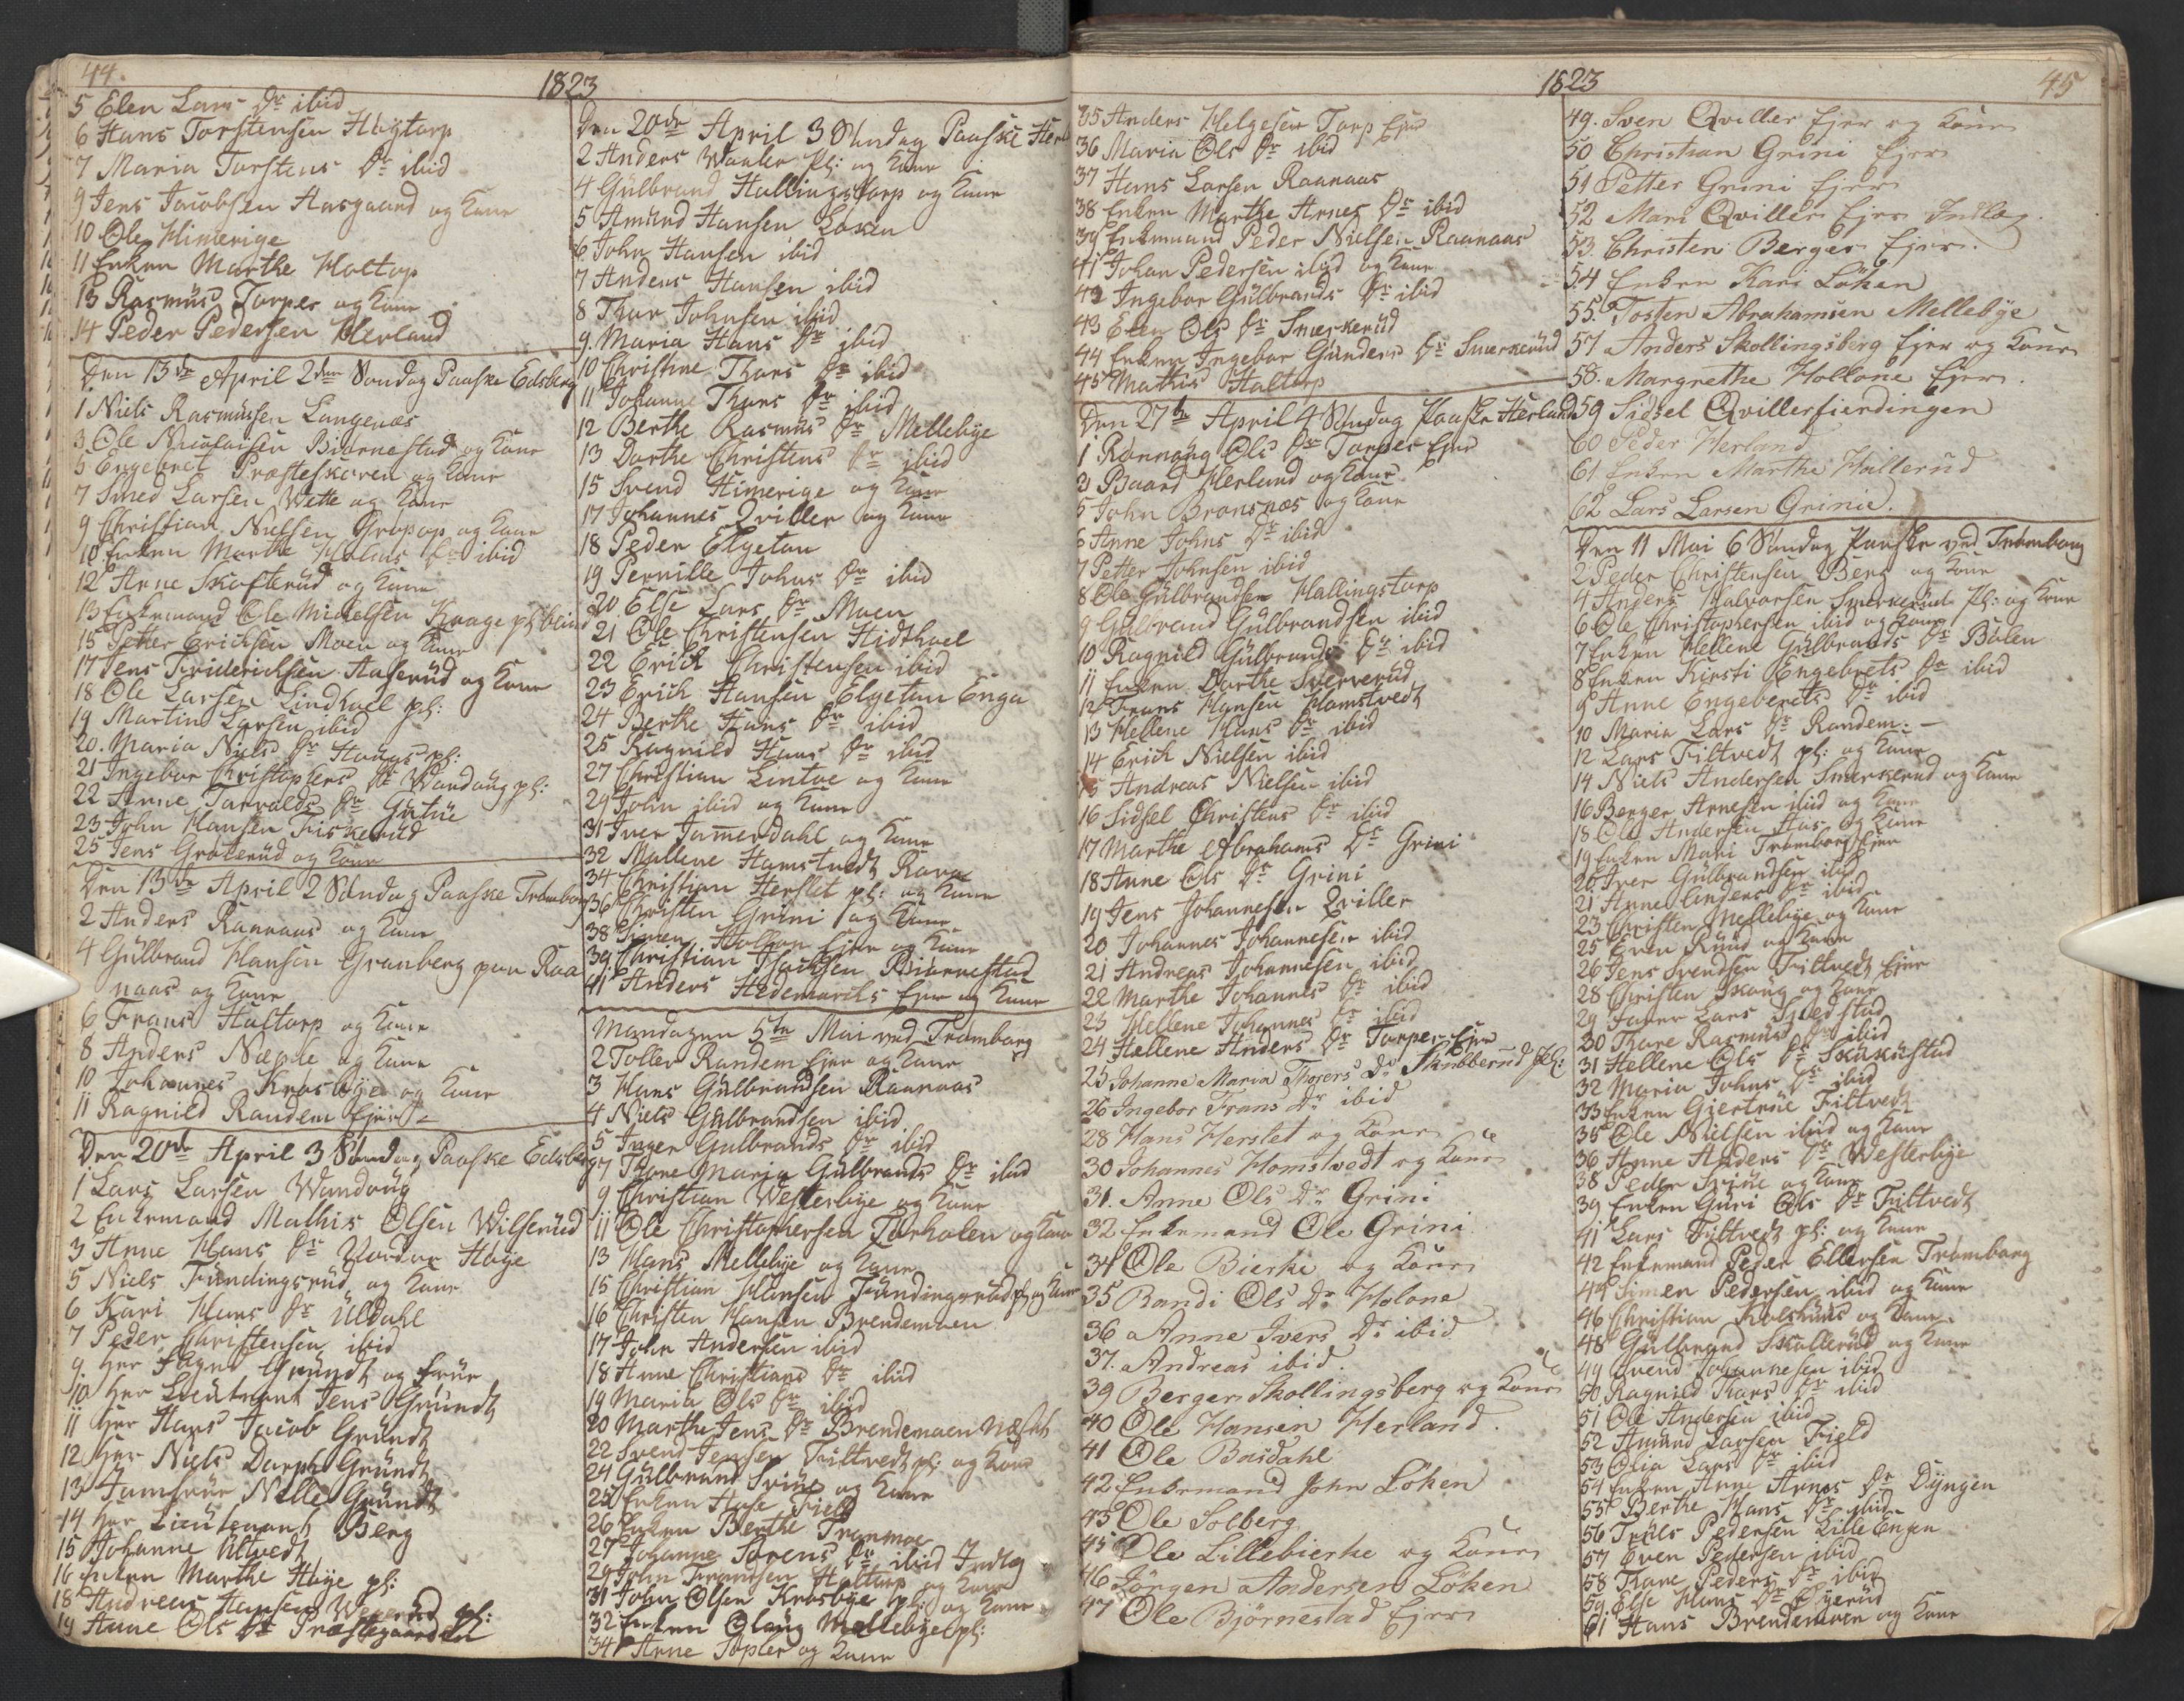 44.
1823
5 Elen Lars Dr ibid
6 Hans Torstensen Høytorp
7 Maria Torstens Dr ibid
9 Jens Jacobsen Aasgaard og Kone
10 Ole Himerige
11 Enken Marthe Holtop
13 Rasmus Torper og Kone
14 Peder Pedersen Herland
Den 13de April 2den Søndag Paaske Edsberg
1 Niels Rasmussen Langenæs
3 Ole Nicolaisen Biørnestad og Kone
5 Engebret Præsteskoven og Kone
7 Smed Larsen Wette og Kone
9 Christian Nielsen Gropop og Kone
10 Enken Marthe Dr ibid
12 Arne Skofterud og Kone
13 Enkemand Ole Mickelsen Krage pl: blind
15 Peder Ericksen Moen og Kone
17 Jens Friderichsen Haserud og Kone
18 Ole Larsen Lindhoel pl:
19 Martin Larsen ibid
20. Maria Niels Dr Haugs pl:
21 Ingebor Christophers Dr Wandaug pl:
22 Anne Torvalds Dr Gutue
23 John Hansen Fiskerud
25 Jens Groterud og Kone
Den 13de April 2 Søndag Paaske Trømborg
2 Anders Raanaas og Kone
4 Gulbrand Hansen Granberg paa Raa
naas og Kone
6 Frans Haltorp og Kone
8 Anders Næple og Kone
10 Johannes Krosbye og Kone
11 Ragnild Randem Ejer
Den 20de April 3 Søndag Paaske Edsberg
1 Lars Larsen Wandoug
2 Enkemand Mathis Olsen Wilserud
3 Anne Hans Dr Høye
5 Niels Fundingsrud og Kone
6 Kari Hans Dr Ulldahl
7 Peder Christensen ibid
9 Her Grundt og Frue
10 Her Lieutnant Jens Grundt
11 Her Hans Jacob Grundt
12 Her Niels Grundt
13 Jomfrue Nille Grundt
14 Her Lieutenant Berg
15 Johanne Ultvedt
16 Enken Marthe Høye pl:
18 Andreas Hansen pl:
19 Anne Ols Dr Præstegaarden
Den 20de April 3 Søndag Paaske Herl
2 Anders Waaler Pl: og Kone
4 Gulbrand Hallingstorp og Kone
5 Amund Hansen Løken
6 John Hansen ibid
7 Anders Hansen ibid
8 Thor Johnsen ibid
9. Maria Hans Dr ibid
10 Christine Thors Dr ibid
11 Johanne Thors Dr ibid
12 Berthe Rasmus Dr Mellebye
13 Dorthe Christens Dr ibid
15 Svend Himerige og Kone
17 Johannes Qviller og Kone
18 Peder Elgetun
19 Pernille Johns Dr ibid
20 Else Lars Dr Moen
21 Ole Christensen Hidthoel
22 Erick Christensen ibid
23 Erich Hansen Elgetun Enga
24 Berthe Hans Dr ibid
25 Ragnild Hans Dr ibid
27 Christian Lintoe og Kone
29 John ibid og Kone
31 Iver Jamerdahl og Kone
32 Mallene Hamstvedt
34 Christian Herslet pl: og Kone
36 Christen Grini og Kone
38 Simen Hollon Ejer og Kone
39 Christian Jacobsen Biørnestad
41 Anders Hedemarcks Ejer og Kone
Mandagen 5te Mai ved Trømborg
2 Tollev Randem Ejer og Kone
3 Hans Gulbrandsen Raanaas
4 Niels Gulbrandsen ibid
5 Inger Gulbrands Dr ibid
7 Thone Maria Gulbrands Dr ibid
9 Christian Westerbye og Kone
11 Ole Christophersen Torholen og Kone
13 Hans Mellebye og Kone
15 Christian Hansen Fundingsrud pl og Kone
16 Christen Hansen Brendemoen
17 John Andersen ibid
18 Anne Christians Dr ibid
19 Maria Ols Dr ibid
20 Marthe Jens Dr Brendemoen
22 Svend Jensen Filtvedt pl: og Kone
24 Gulbrand og Kone
25 Enken Field
26 Enken Berthe Tranmoe
27 Johanne Sørens Dr ibid Indlæg
29 John Frandsen Haltorp og Kone
31 John Olsen Krosbye pl: og Kone
32 Enken Olaug Mellebye pl:
34 Arne Topler og Kone
1823
45
35 Anders Helgesen Torp Ejer
36 Maria Ols Dr ibid
37 Hans Larsen Raanaas
38 Enken Marthe Arnes Dr ibid
39 Enkemand Peder Nielsen Raanaas
41 Johan Pedersen ibid og Kone
42 Ingebor Gulbrands Dr ibid
43 Elen Ols Dr Smerkerud
44 Enken Ingebor Gunders Dr Smerkerud
45 Mathis Haltorp
Den 27de April 4 Søndag Paaske Herland
1 Rønnaug Ols Dr Torper Ejer
3 Baard Herland og Kone
5 John Bronsnæs og Kone
6 Anne Johns Dr ibid
7 Petter Johnsen ibid
8 Ole Gulbrandsen Hallingstorp
9 Gulbrand Gulbrandsen ibid
10 Ragnild Gulbrands Dr ibid
11 Enken Dorthe Sververud
12 Frans Hansen Homstvedt
13 Hellene Hans Dr ibid
14 Erich Nielsen ibid
15 Andreas Nielsen ibid
16 Sidsel Christens Dr ibid
17 Marthe Abrahams Dr Grini
18 Anne Ols Dr Grini
19 Jens Johannesen Qviller
20 Johannes Johannesen ibid
21 Andreas Johannesen ibid
22 Marthe Johannes Dr ibid
23 Hellene Johannes Dr ibid
24 Hellene Anders Dr Torper Ejer
25 Johanne Maria Thorers Dr Skubberud
26 Ingebor Frans Dr ibid
28 Hans Herslet og Kone
30 Johannes Homstvedt og Kone
31. Anne Ols Dr Grini
32 Enkemand Ole Grini
34 Ole Bierke og Kone
35 Randi Ols Dr Holone
36 Anne Ivers Dr ibid
37. Andreas ibid.
39 Berger Skollingsberg og Kone
40 Ole Hansen Herland.
41 Ole Basdahl
42 Enkemand John Løken
43 Ole Solberg
45 Ole Lillebierke og Kone
46 Jørgen Andersen Løken
47 Ole Bjørnestad Ejer
49. Sven Qviller Ejer og Kone
50 Christian Grini Ejer
51 Petter Grini Ejer
52 Mari Qviller Ejer Indlæg.
53. Christen Berger Ejer.
54 Enken Kari Løken
55. Tosten Abrahamsen Mellebye
57 Anders Skollingsberg Ejer og Kone
58. Margrethe Hollone Ejer.
59 Sidsel Qvillerfierdingen
60 Peder Herland
61 Enken Marthe Hallerud
62 Lars Larsen Grinie.
Den 11 Mai 6 Søndag Paaske ved Trømborg
2 Peder Christensen Berg og Kone
4 Anders Halvorsen Smerkerud Pl: og Kone
6 Ole Christophersen ibid og Kone
7 Enken Hellene Gulbrands Dr Bølen
8 Enken Kirsti Engebrets Dr ibid
9 Anne Engebrets Dr ibid
10 Maria Lars Dr Randem. -
12 Lars Filtvedt pl: og Kone
14 Niels Andersen Smerkerud og Kone
16 Berger Arnesen ibid og Kone
18 Ole Andersen Aas og Kone
19 Enken Mari Trømborg Ejer
20 Iver Gulbrandsen ibid
21 Anne Anders Dr ibid
23 Christen Mellebye og Kone
25 Even Ruud og Kone
26 Jens Svendsen Filtvedt Ejer
28 Christen Skoug og Kone
29 Lars
30 Thore Rasmus Dr ibid
31 Hellene Ols Dr
32 Maria Johns Dr ibid
33 Enken Giertrue Filtvedt
35 Ole Nielsen ibid og Kone
36 Anne Anders Dr Westerbye
38 Peder og Kone
39 Enken Guri Ols Dr Filtvedt
41 Lars Filtvedt pl: og Kone
42 Enkemand Peder Ellersen Trømborg
44 Simen Pedersen ibid og Kone
46 Christian Kolshuus og Kone
48 Gulbrand Skallerud og Kone
49 Svend Johannesen ibid
50. Ragnild Lars Dr ibid
51 Ole Andersen ibid
52 Amund Larsen Field
53 Olia Lars Dr ibid
54 Enken Anne Arnes Dr Dyngen
55 Berthe Hans Dr ibid
56 Truls Pedersen Lille Engen
57 Even Pedersen ibid
58 Thore Peders Dr ibid
59 Else Hans Dr
61 Hans Brendemoen og Kone